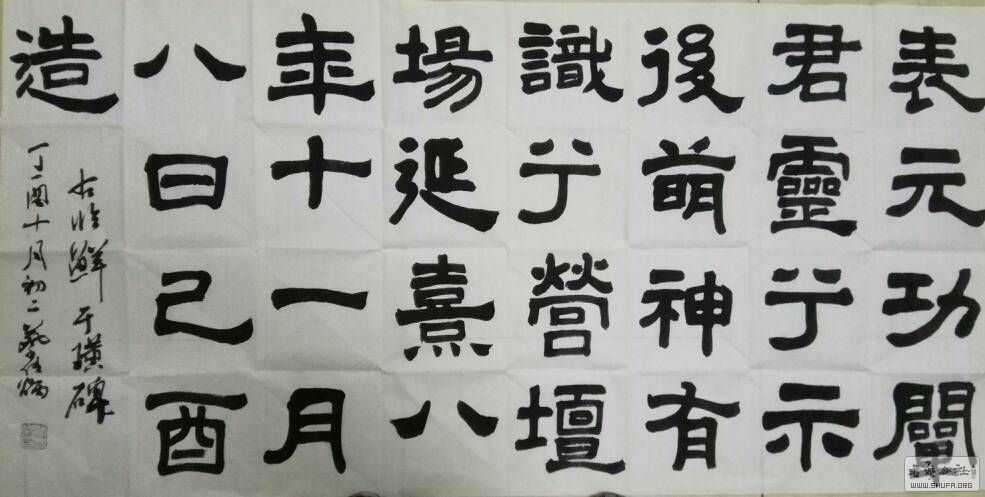 表元功闡
君靈兮示
後萌神有
識兮營壇
場延熹八
年十一月
八日己酉
造
右临鮮于璜碑
丁酉十月初二
书法公社
WWW.SHUFA.ORG